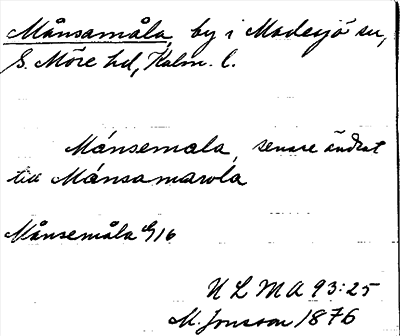 Månsamåla, by i Madesjö sn,
S. Möre hd, Kalm. l.
Månsemala, senare ändrat
till Månsamarola
Månsemåla G16
ULMA 93:25
M. Jonsson 1876